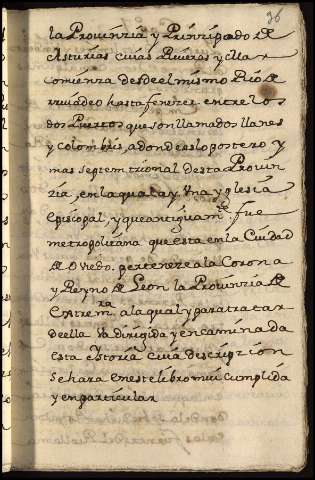 36
la Prouinzia y Prinzipado de
Asturias cuias Riueras y illa
comienza desde el mismo Rio de
riuadeo hasta fenezer entre los
dos Puertos que son llamados llanes
y colombres, adonde es lo postero y
mas septemtrional desta Prouin
zia, en la qual ay Vna yglesia
episcopal, y que antiguam.te fue
metropolitana que esta em la Ciudad
de Ouiedo. perteneze a la Corona
y Reyno de Leon la Prouinzia de
extrem.ra a la qual y para tratar
de ella va dirigida y encaminada
esta ystoria cuia descripzion
se hara en este libro mui cumplida
y en particular